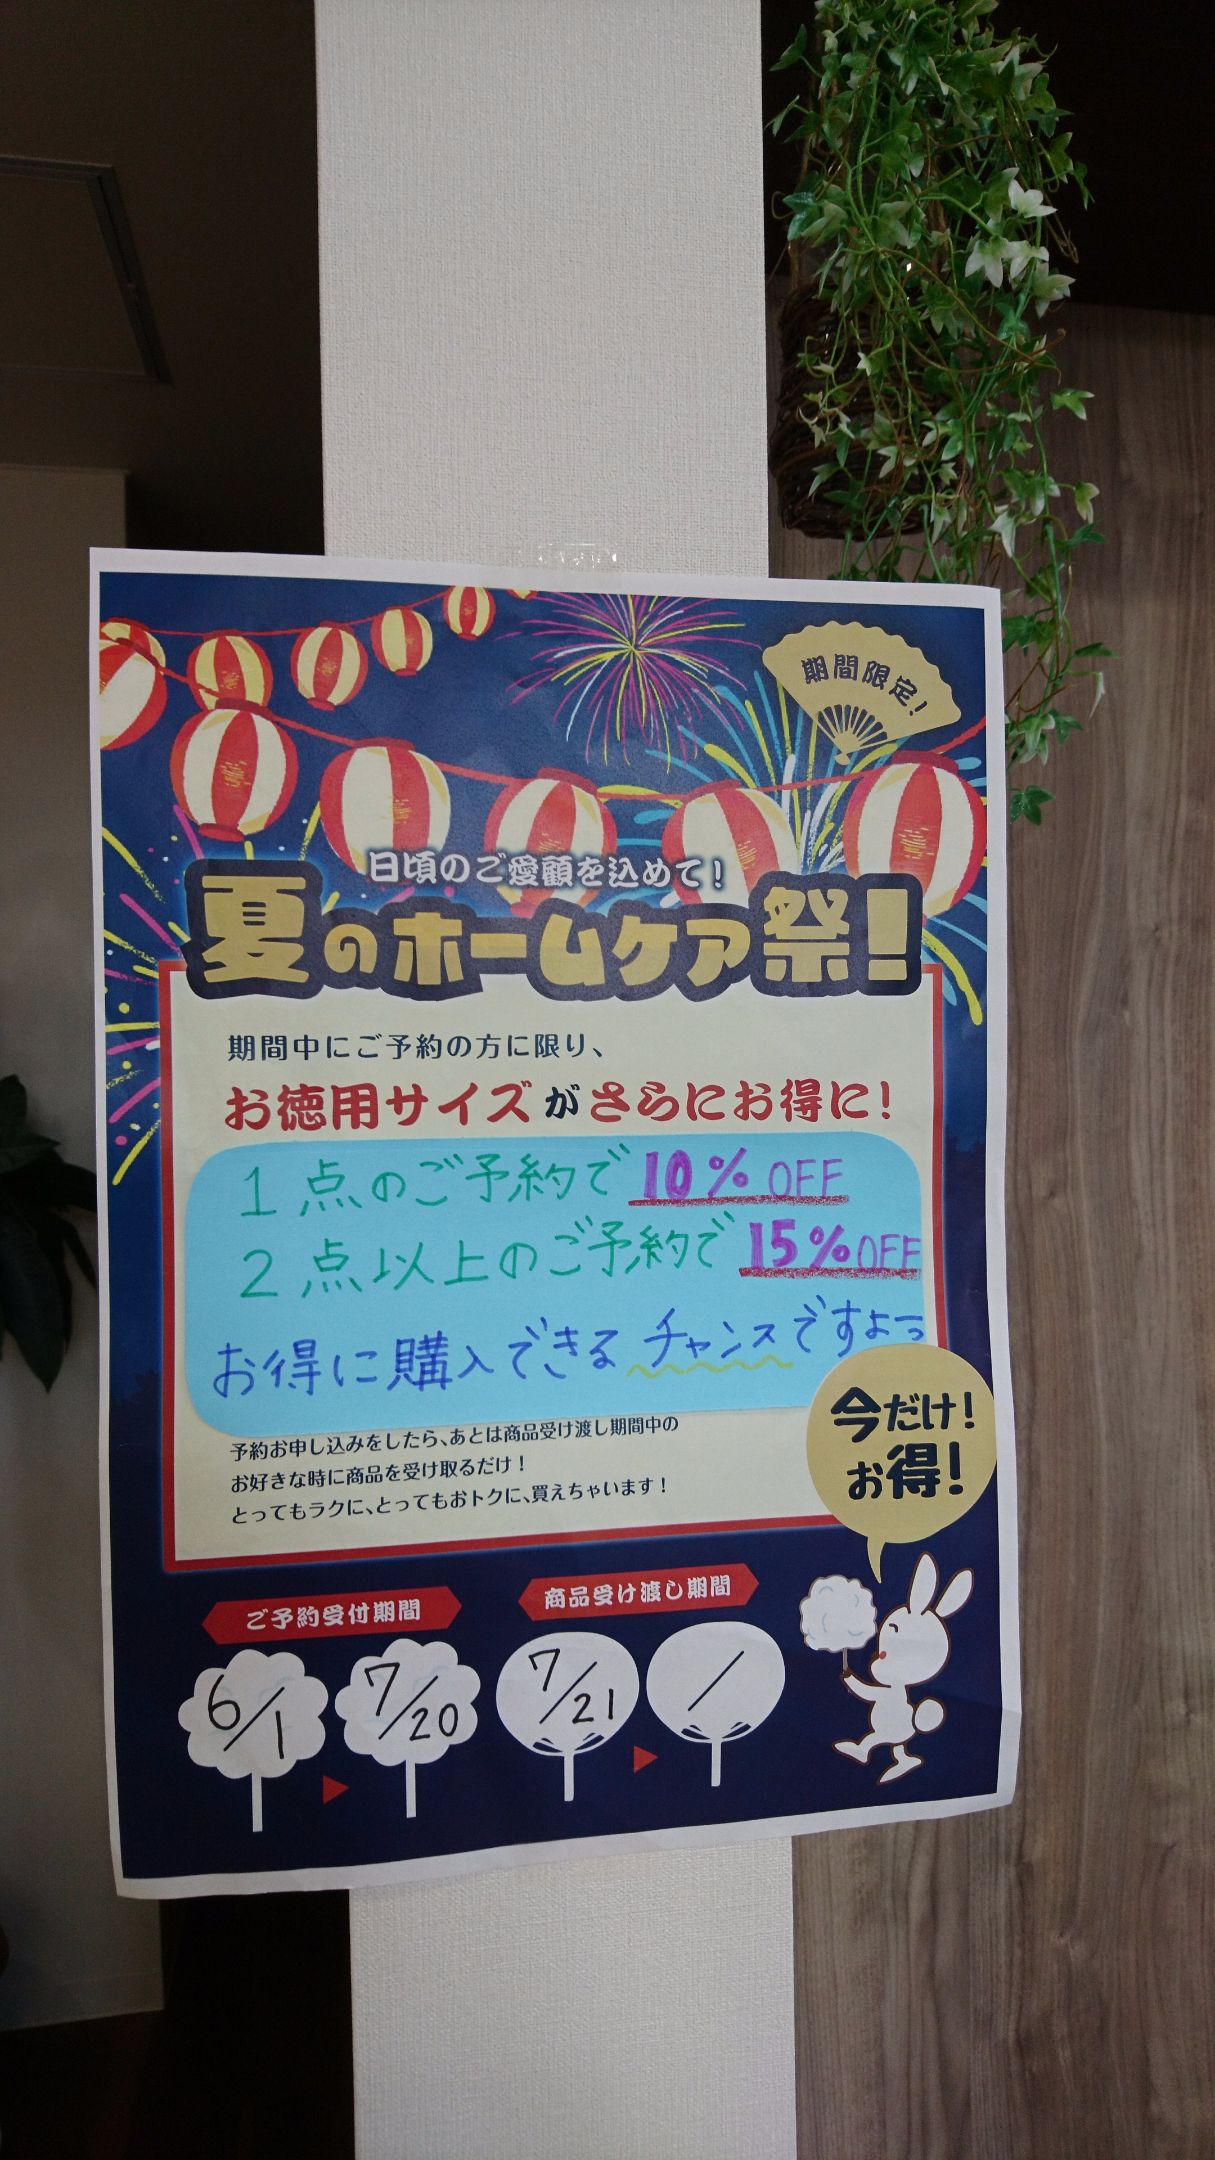 期間限定!
日頃のご愛顧を込めて!
夏のホームケア祭!
期間中にご予約の方に限り、
お徳用サイズがさらにお得に!
1点のご予約で10%OFF
2点以上のご予約で15%OFF
お得に購入できるチャンスですよーっ
予約お申し込みをしたら、あとは商品受け渡し期間中の
お好きな時に商品を受け取るだけ!
とってもラクに、とってもおトクに、買えちゃいます!
今だけ!
お得!
ご予約受付期間
6/1 ▶ 7/20
商品受け渡し期間
7/21 ▶ /